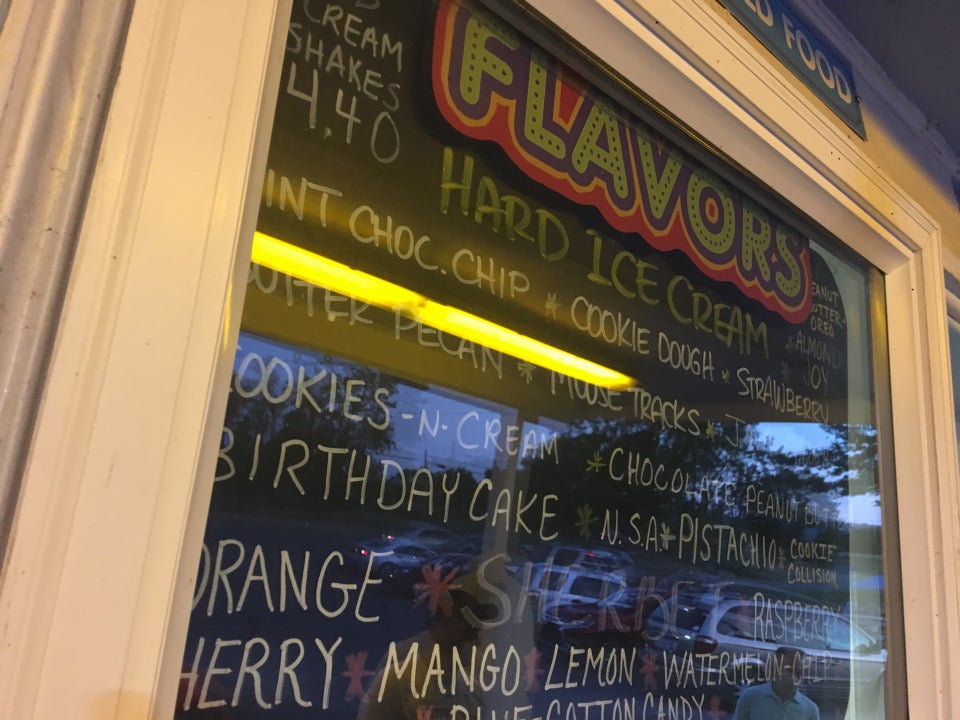 CREAM
SHAKES
4.40
FLAVORS
FOOD
HARD ICE CREAM
INT CHOC. CHIP * COOKIE DOUGH * STRAWBERRY
EANUT
UTTER-
OREO
* ALMOND
JOY
UTTER PECAN * MOOSE TRACKS *
COOKIES-N-CREAM * CHOCOLATE PEANUT BUTTE
BIRTHDAY CAKE * N.S.A. * PISTACHIO * COOKIE
COLLISION
ORANGE * SHERBET RASPBERRY
HERRY * MANGO * LEMON * WATERMELON-CHIP
BLUE-COTTON CANDY *